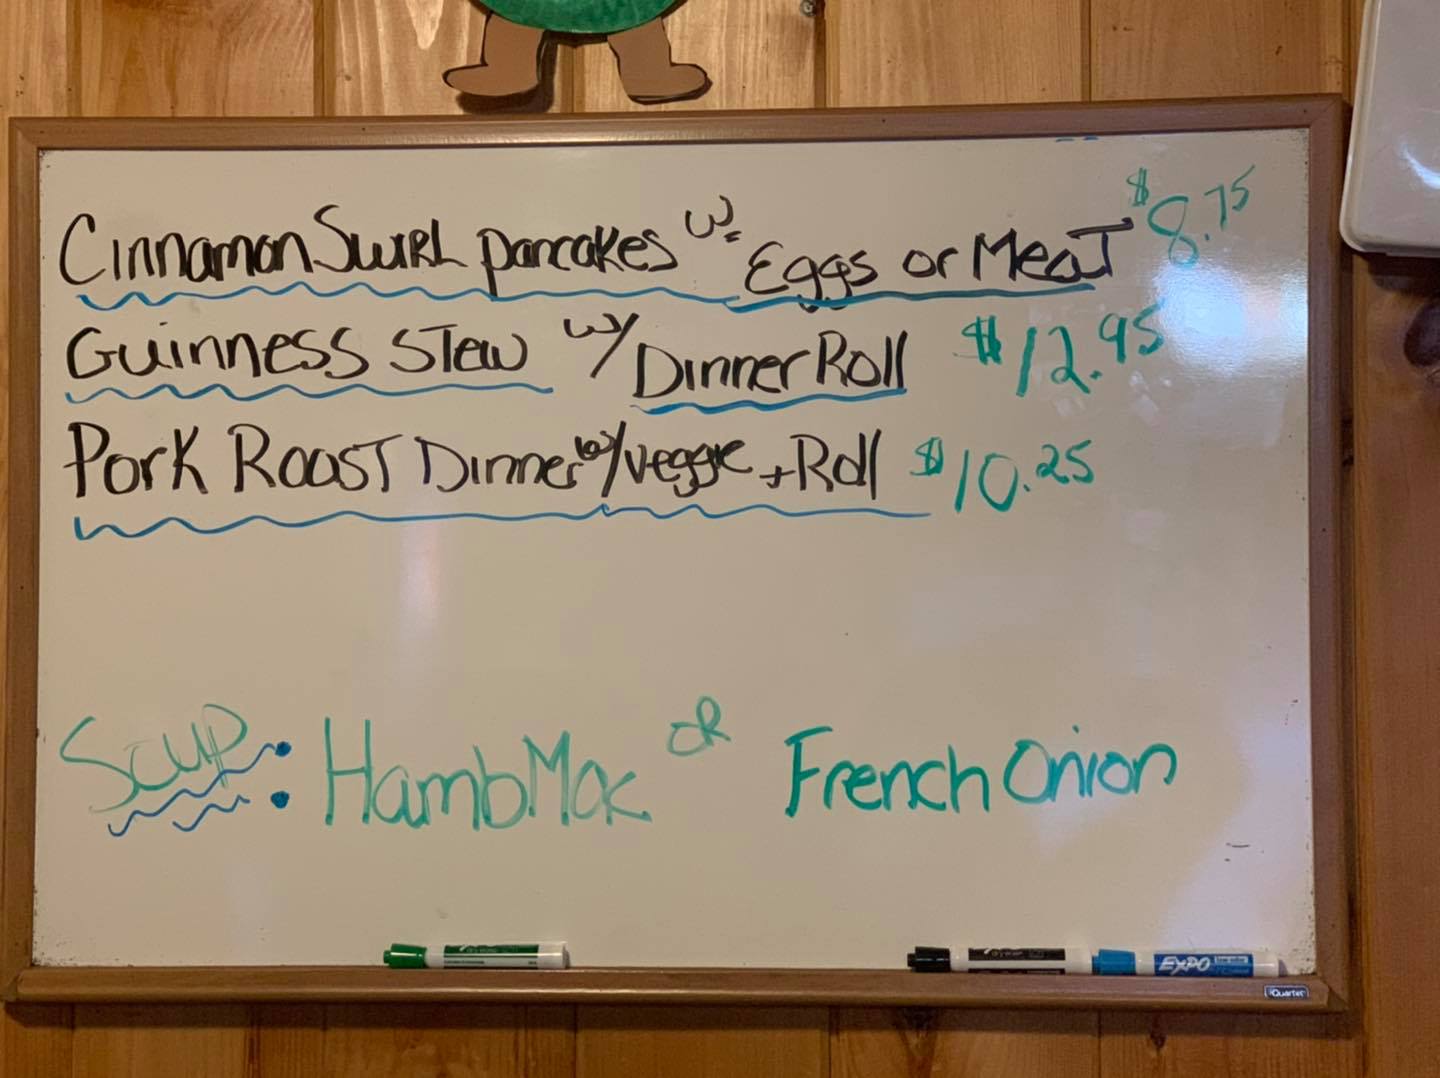 Cinnamon Swirl pancakes w. Eggs or Meat $8.75
Guinness Stew w/ Dinner Roll $12.95
Pork Roast Dinner w/ veggie + Roll $10.25
Soup: HambMac or French Onion
EXPO
Quartet